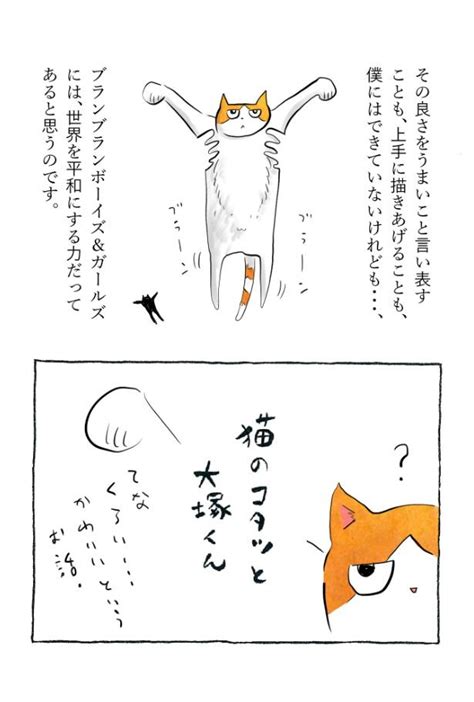 その良さをうまいこと言い表す
ことも、上手に描きあげることも、
僕にはできていないけれども・・・、
ブランブランボーイズ＆ガールズ
には、世界を平和にする力だって
あると思うのです。
ブラーン
ブラーン
？
猫のコタツと
大塚くん
てな
くらい・・・・
かわいいという
お話。